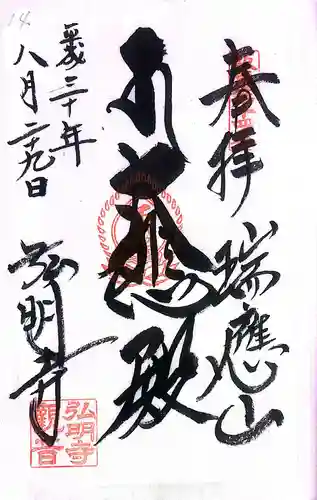 奉拝
瑞應山
大悲殿
平成三十年
八月二十九日
弘明寺
弘明寺
観音
14